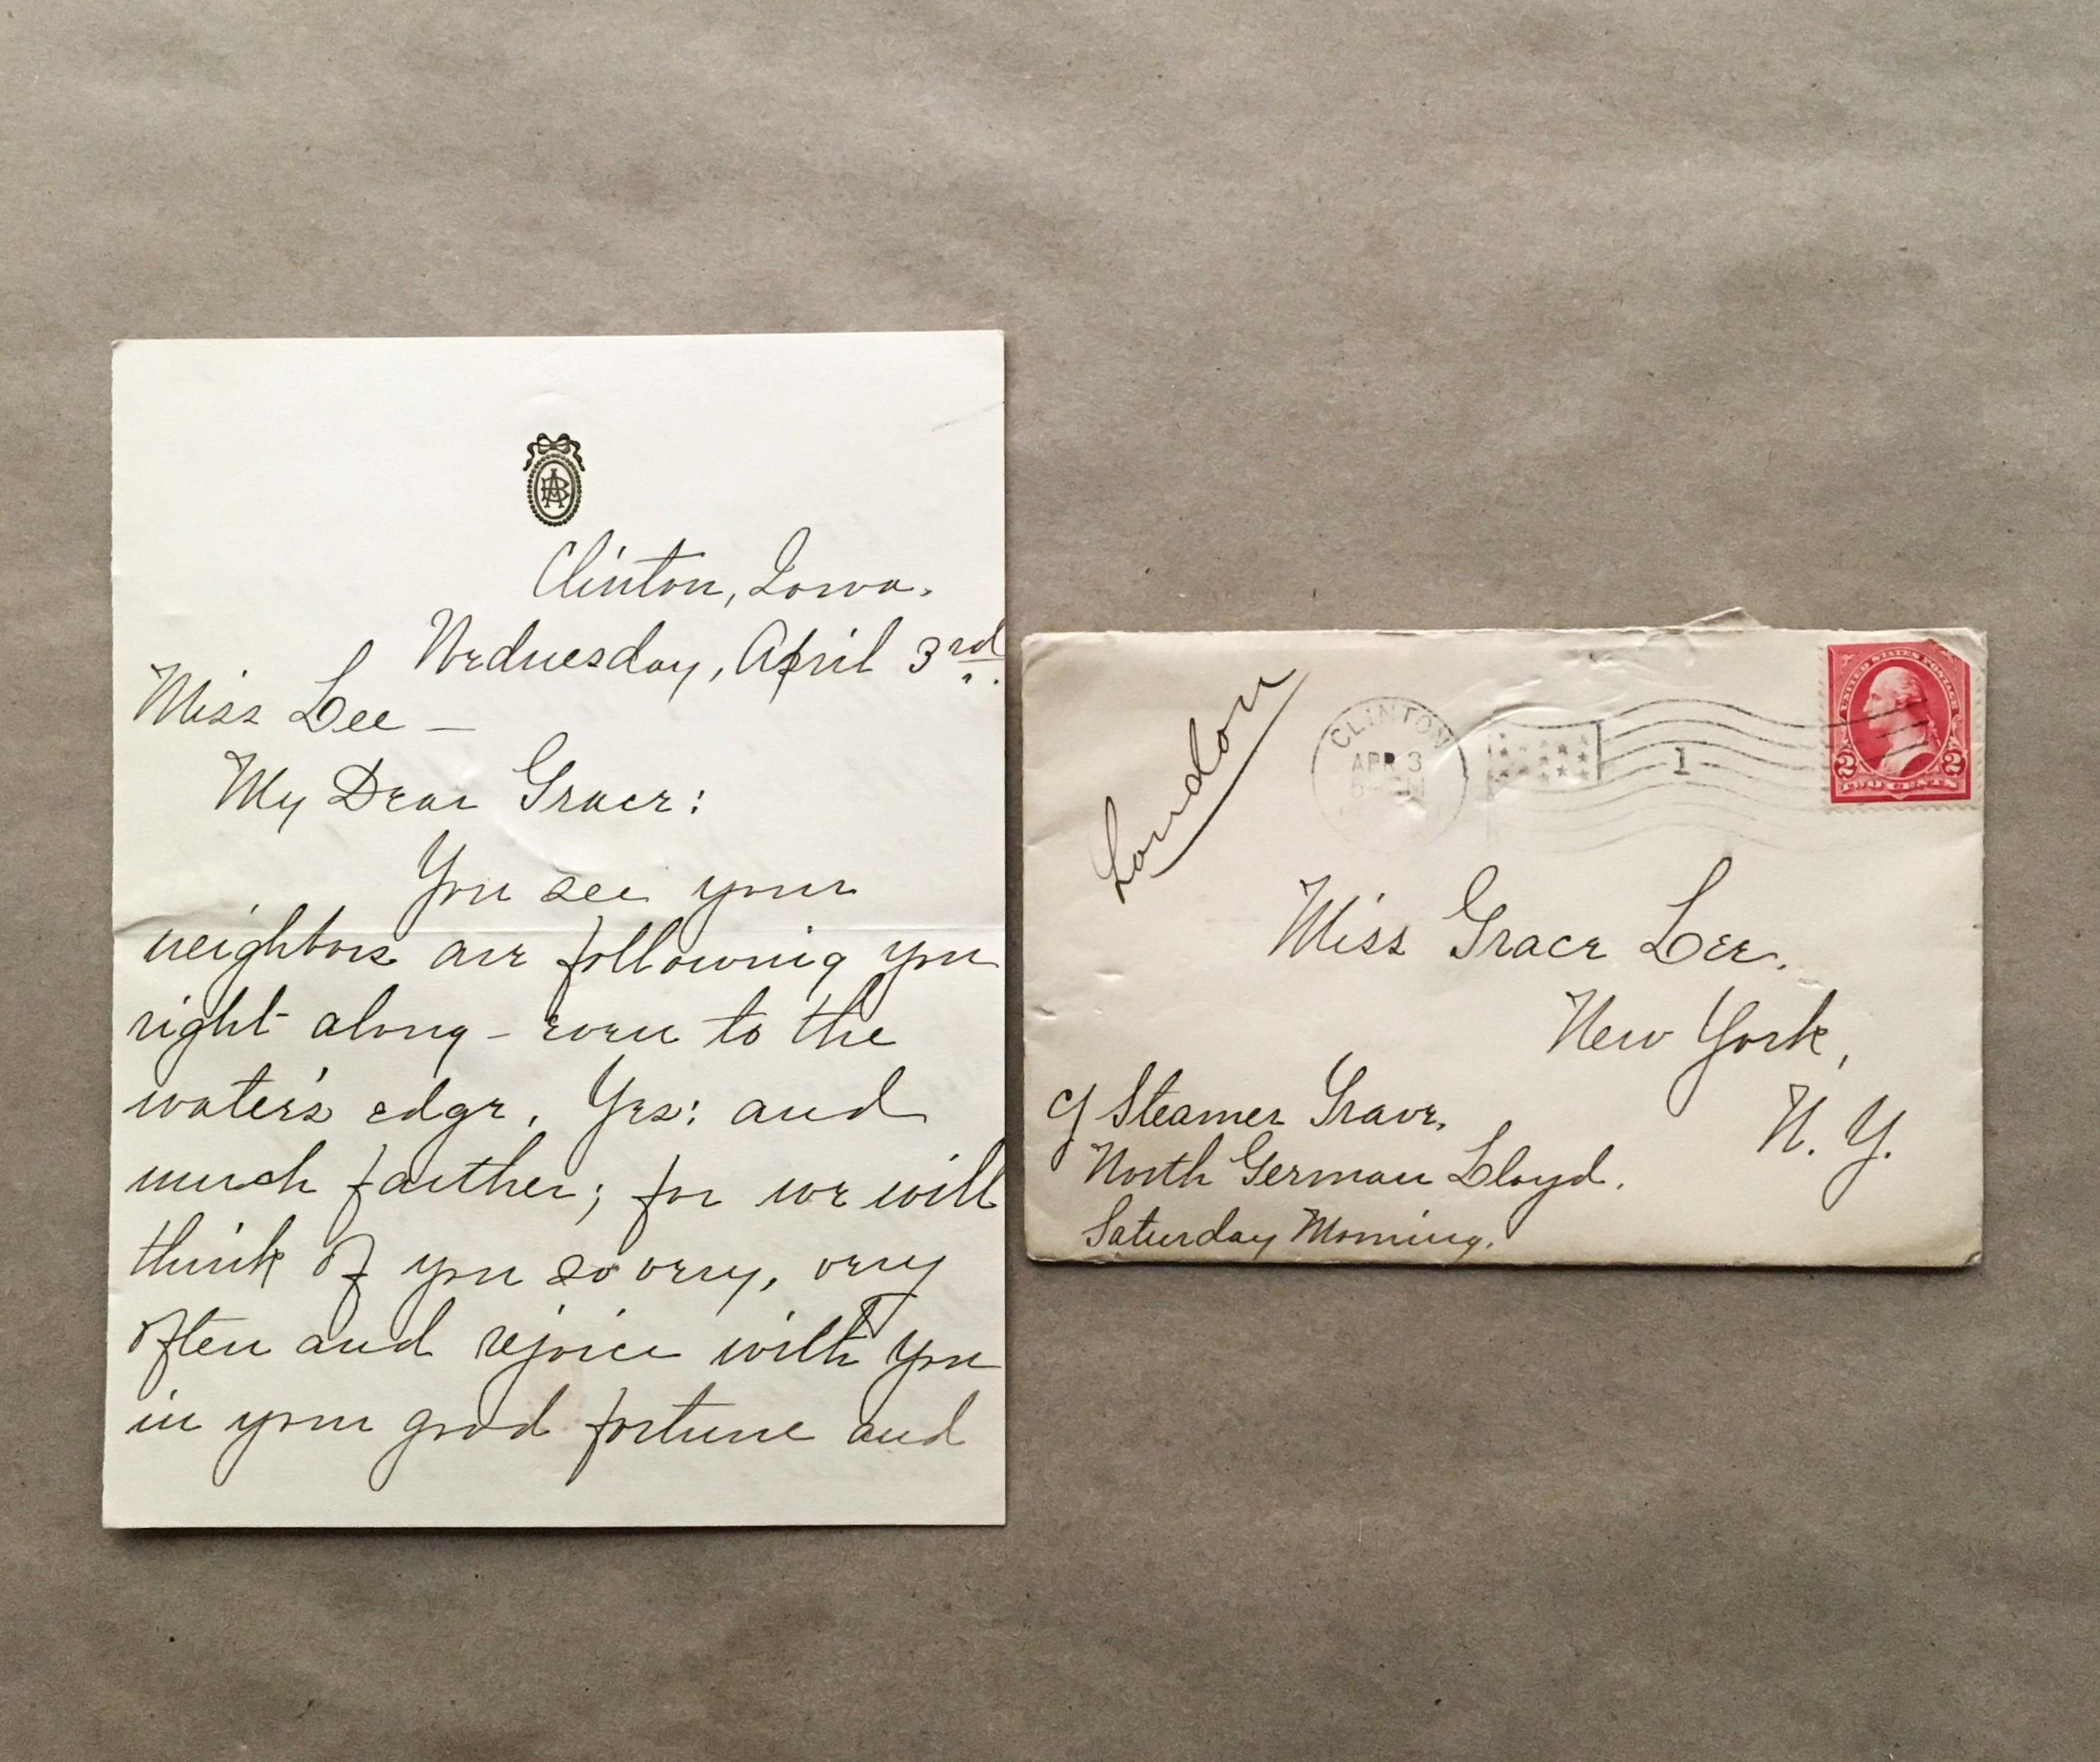 Clinton, Iowa.
Wednesday, April 3rd.
Miss Lee —
My Dear Grace:
You see your
neighbors are following you
right along - even to the
water's edge. Yes: and
much farther; for we will
think of you so very, very
often and rejoice with you
in your good fortune and
London
CLINTON
APR 3
1
UNITED STATES POSTAGE
2 2
TWO CENTS
Miss Grace Lee.
New York,
N. Y.
Steamer Trave.
North German Lloyd.
Saturday Morning.